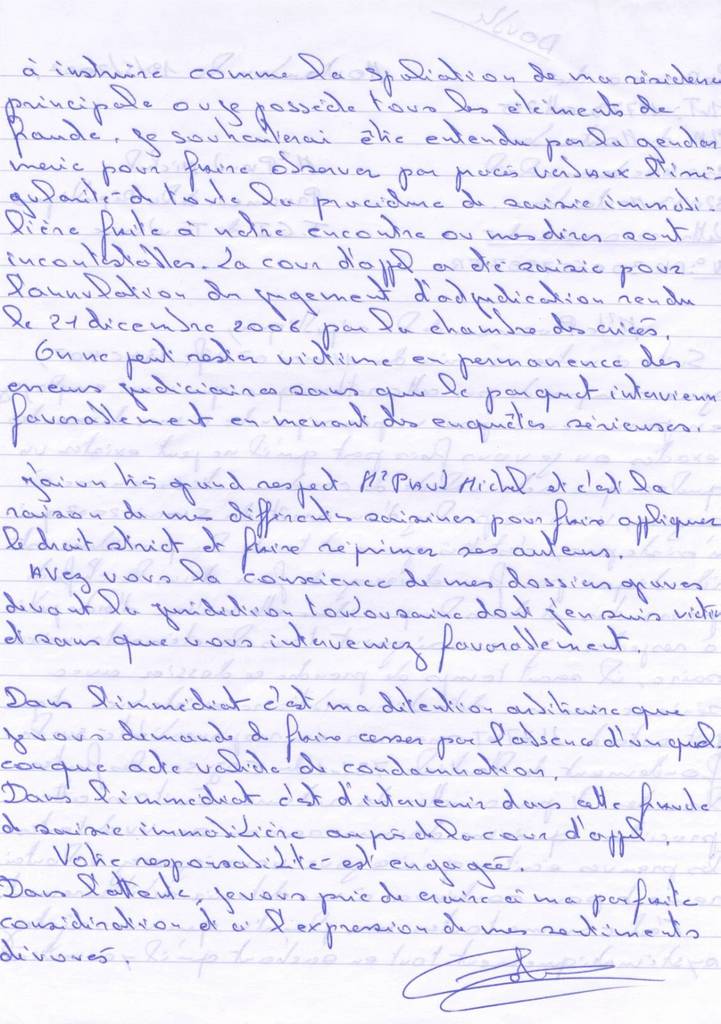 à instruire comme la spoliation de ma résidence
principale ou je possède tous les éléments de
fraude, je souhaiterai être entendu par la gendar
merie pour faire observer par procès verbaux l'irré
gularité de toute la procédure de saisie immobi.
lière faite à notre encontre ou mes dires sont
incontestables. La cour d'appel a été saisie pour
l'annulation du jugement d'adjudication rendu
le 21 dicembre 2006 par la chambre des criées.
On ne peut rester victime en permanence des
erreurs judiciaires sans que le parquet intervienne
favorablement en menant des enquêtes sérieuses.
j'ai un très grand respect Mr PAUL Michel et c'est la
raison de mes différentes saisines pour faire appliquer
le droit strict et faire réprimer ses auteurs.
AVez vous la conscience de mes dossiers graves
devant la juridiction toulousaine dont j'en suis victime
et sans que vous interveniez favorablement.
Dans l'immédiat c'est ma détention arbitraire que
je vous demande de faire cesser par l'absence d'un quel
conque acte valide de condamnation.
Dans l'immédiat c'est d'intervenir dans cette fraude
de saisie immobilière auprès de la cour d'appel.
Votre responsabilité est engagée.
Dans l'attente, je vous prie de croire à ma parfaite
considération et à l'expression de mes sentiments
dévoués.